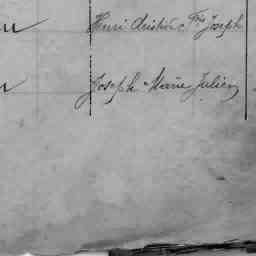 Henri Aristide Fois Joseph
Joseph Marie Julien